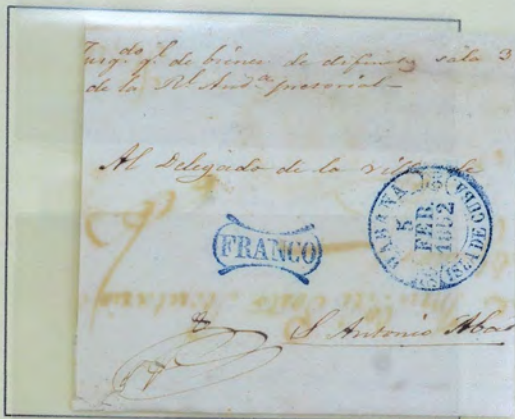 Juzgdo gl. de bienes de difuntos sala 3
de la Rl. Auda. pretorial
Al Delegado de la villa de
HABANA
5
FEB.
1852
ISLA DE CUBA
FRANCO
S Antonio Abad